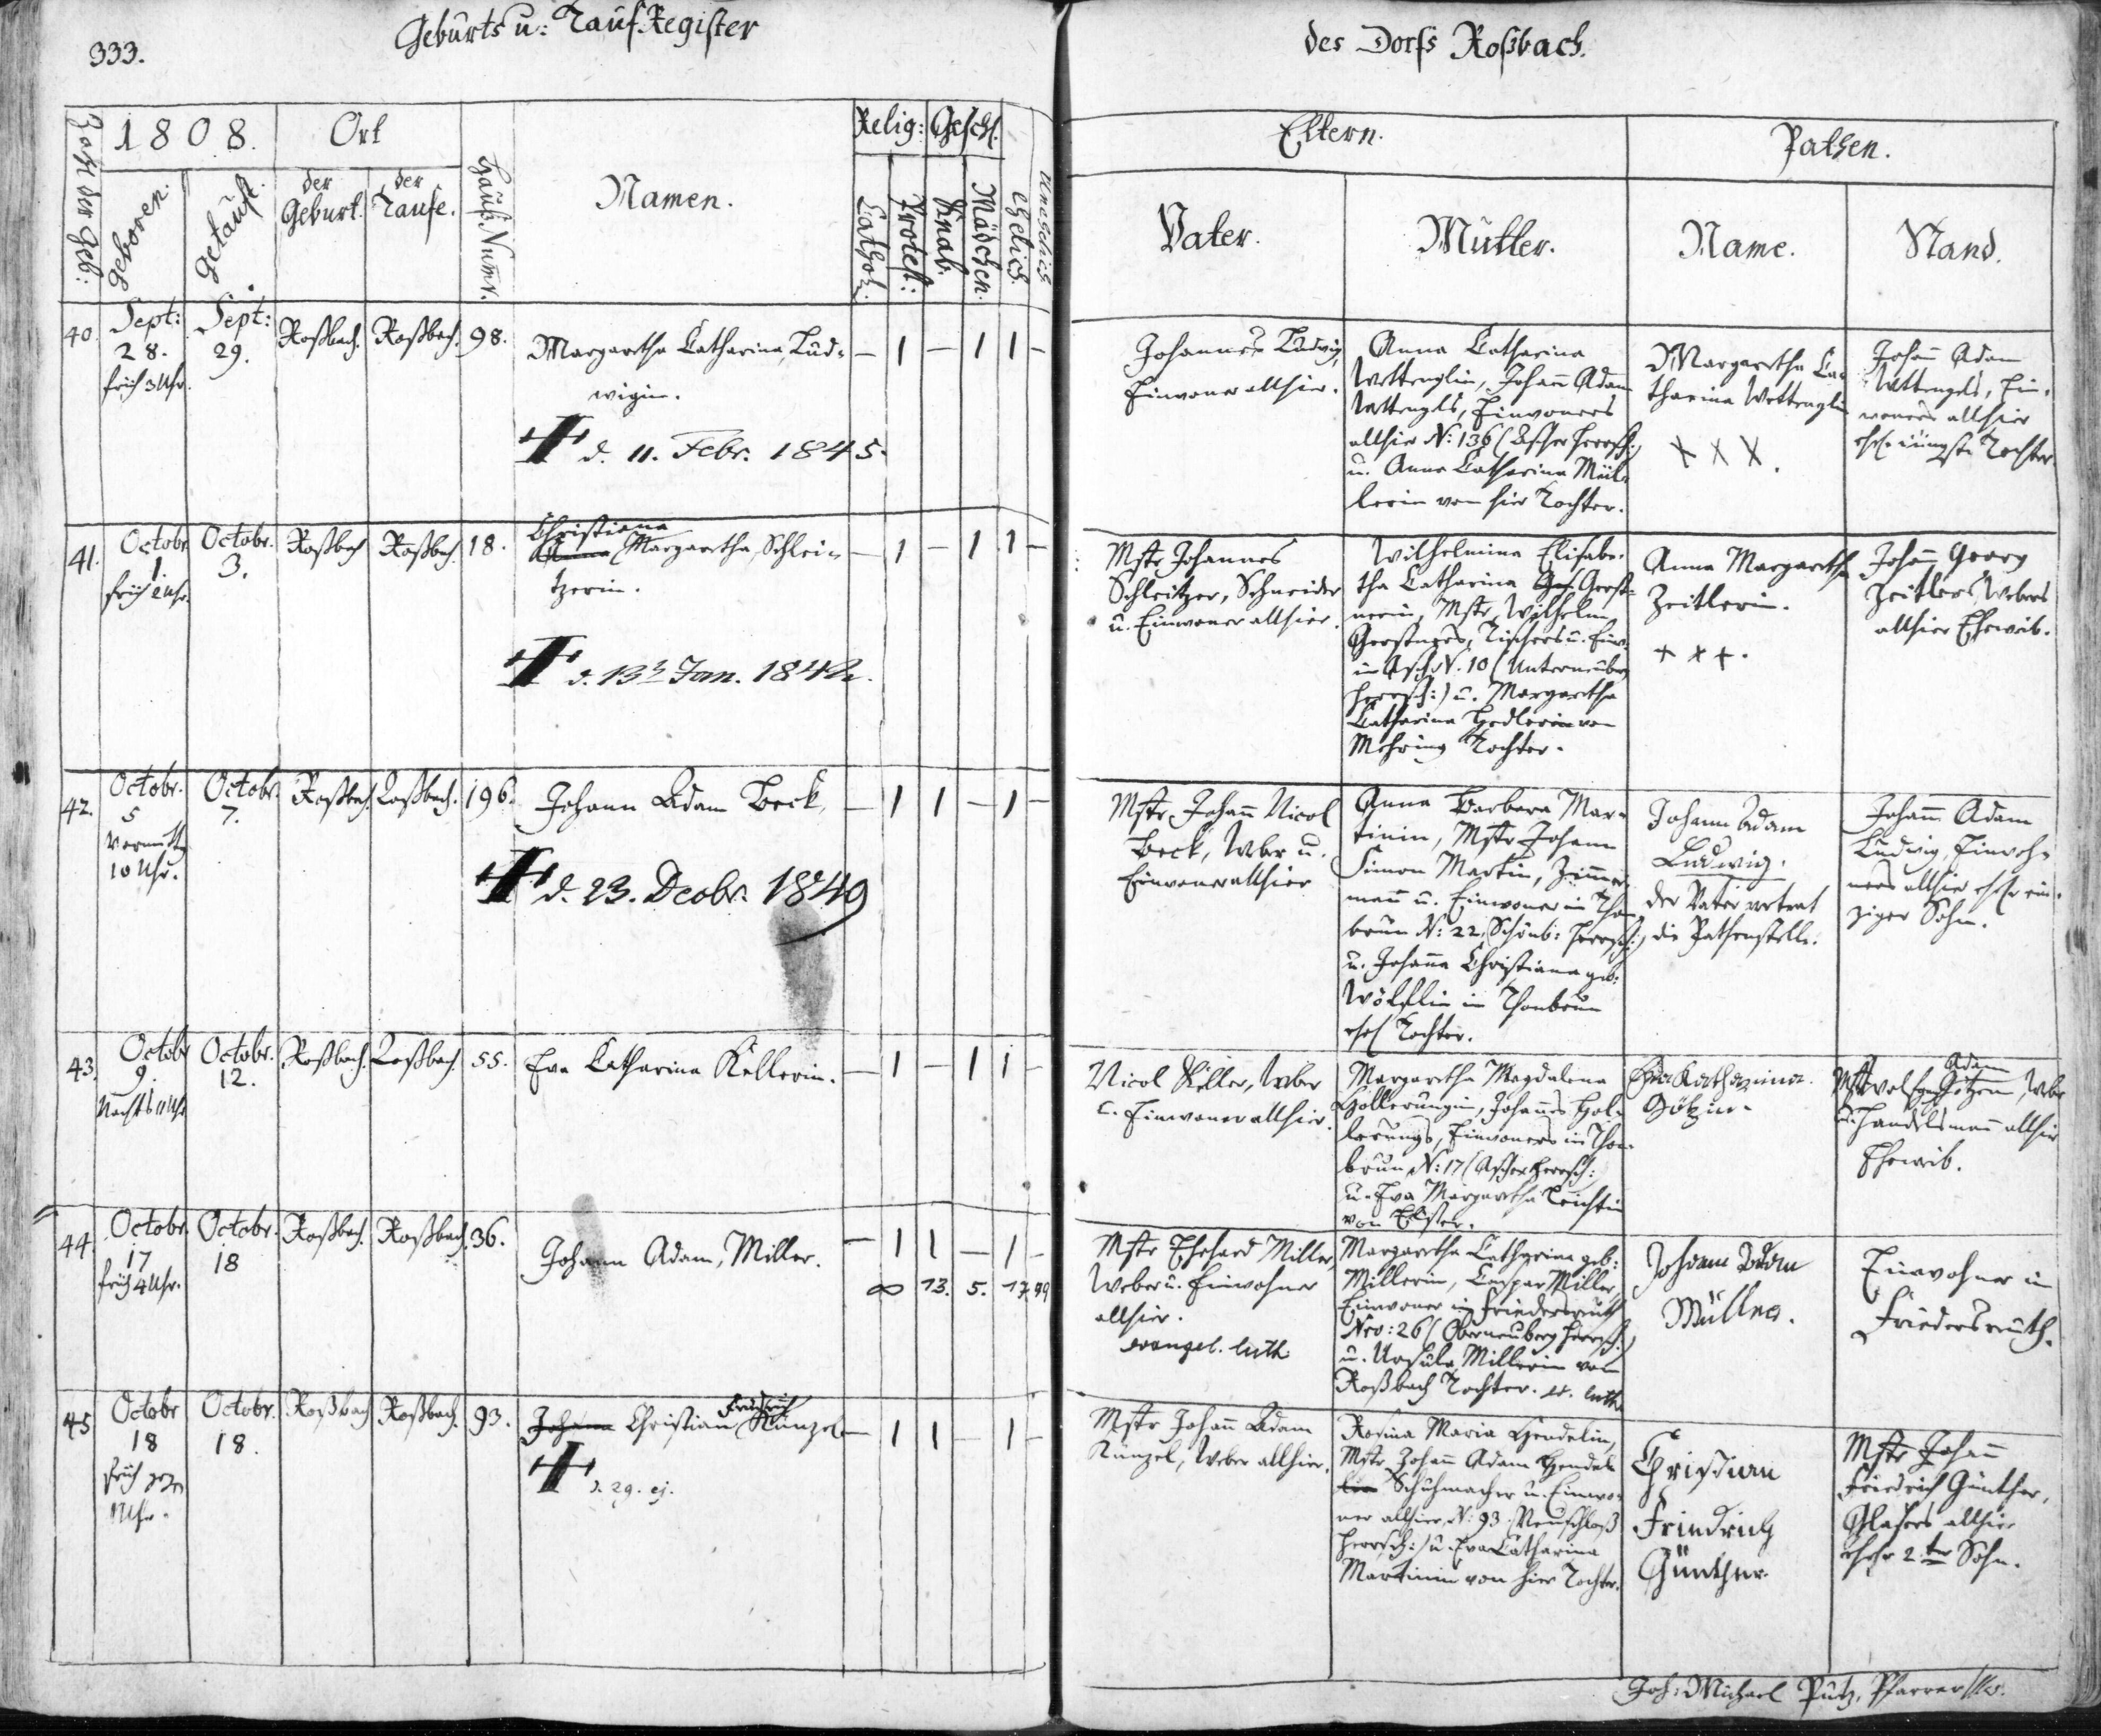 333.
Geburts u: Tauf-Register
des Dorfs Roßbach.
Zahl der Geb:
1808.
Ort
Hauß-Numr.
Namen.
Relig:
Geschl.
Ehelich.
Unehelich
geboren.
getauft.
der Geburt.
der Taufe.
Cathol.
Protest:
Knab.
Mädchen.
Eltern.
Pathen.
Vater.
Mutter.
Name.
Stand.
40.
Sept:
28.
früh 3 Uhr.
Sept:
29.
Roßbach.
Roßbach.
98.
Margaretha Catharina, Lud-
wigin.
d. 11. Febr. 1845.
— 1 — 1 1 —
Johannes Ludwig,
Einwoner allhier.
Anna Catharina
Wettenglin, Johañ Adam
Wettengels, Einwoners
allhier N: 136 (Ascher Herrsch:)
u. Anna Catharina Mül-
lerin von hier Tochter.
Margaretha Ca-
tharina Wettenglin
XXX.
Johañ Adam
Wettengels, Ein-
woners allhier
ehel. jüngste Tochter
41.
Octobr.
1.
früh 2 Uhr.
Octobr.
3.
Roßbach
Roßbach.
18.
Christiana
Margaretha, Schlei-
tzerin.
d. 13 Jan. 1842.
— 1 — 1 1 —
Mstr. Johannes
Schleitzer, Schneider
u. Einwoner allhier.
Wilhelmina Elisabe-
tha Catharina Gerst-
nerin, Mstr. Wilhelm
Gerstners, Tischers u. Einw.
in Asch N. 10 (Unterneuberg
Herrsch:) u. Margaretha
Catharina Hedlerin von
Mehring Tochter.
Anna Margaretha
Zeitlerin.
+ x +.
Johañ Georg
Zeitlers Webers
allhier Eheweib.
42.
Octobr.
5
Vormittg
10 Uhr.
Octobr.
7.
Roßbach.
Roßbach.
196.
Johann Adam Beck,
d. 23. Decbr. 1849
— 1 1 — 1 —
Mstr. Johañ Nicol
Beck, Weber u.
Einwoner allhier
Anna Barbara Mar-
tinin, Mstr. Johann
Simon Martin, Zimmer
mañ u. Einwoner in Thon
brun N: 22, (Schönb: Herrsch:)
u. Johanna Christiana geb:
Wölflin in Thonbrun
ehel Tochter.
Johann Adam
Ludwig.
der Vater vertrat
die Pathenstelle.
Johann Adam
Ludwig, Einwoh-
ners allhier ehel. ein-
ziger Sohn.
43.
Octobr
9.
Nachts 11 Uhr
Octobr.
12.
Roßbach.
Roßbach.
55.
Eva Catharina Kellerin.
— 1 — 1 1 —
Nicol Keller, Weber
u. Einwoner allhier.
Margaretha Magdalena
Hollerungin, Johannes Hol-
lerungs, Einwoners in Thon-
brun N: 17 (Ascher Herrsch:
u. Eva Margaretha Leichtin
von Elster.
Eva Katharina.
Götzin.
Adam
Götzen, Weber
u. Handelsmañ allhier
Eheweib.
44.
Octobr.
17
früh 4 Uhr.
Octobr.
18
Roßbach.
Roßbach.
36.
Johann Adam, Miller.
— 1 1 — 1 —
∞ 13. 5. 17.
Mstr. Erhard Miller,
Weber u. Einwohner
allhier.
evangel. luth.
Margaretha Catharina geb:
Millerin, Caspar Miller,
Einwoner in Friedersreuth
Nro: 26 (Oberneuberg Herrsch:)
u. Ursula Millerin von
Roßbach Tochter. ev. luth.
Johann Adam
Müller.
Einwohner in
Friedersreuth.
45
Octobr
18
früh gegen
1 Uhr.
Octobr.
18.
Roßbach
Roßbach.
93.
Friedrich
Johann Christian Künzel
d. 29. ej.
— 1 1 — 1 —
Mstr Johañ Adam
Künzel, Weber allhier.
Rosina Maria Hendelin,
Mstr. Johañ Adam Hendel
Schuhmacher u. Einwo-
ner allhier, N: 93 (Neuschloß
Herrsch:) u. Eva Catharina
Martinin von hier Tochter.
Christian
Friedrich
Günther
Mstr Johañ
Friedrich Günther,
Glasers allhier
ehel. 2ter Sohn.
Joh: Michael Putz, Pfarrer